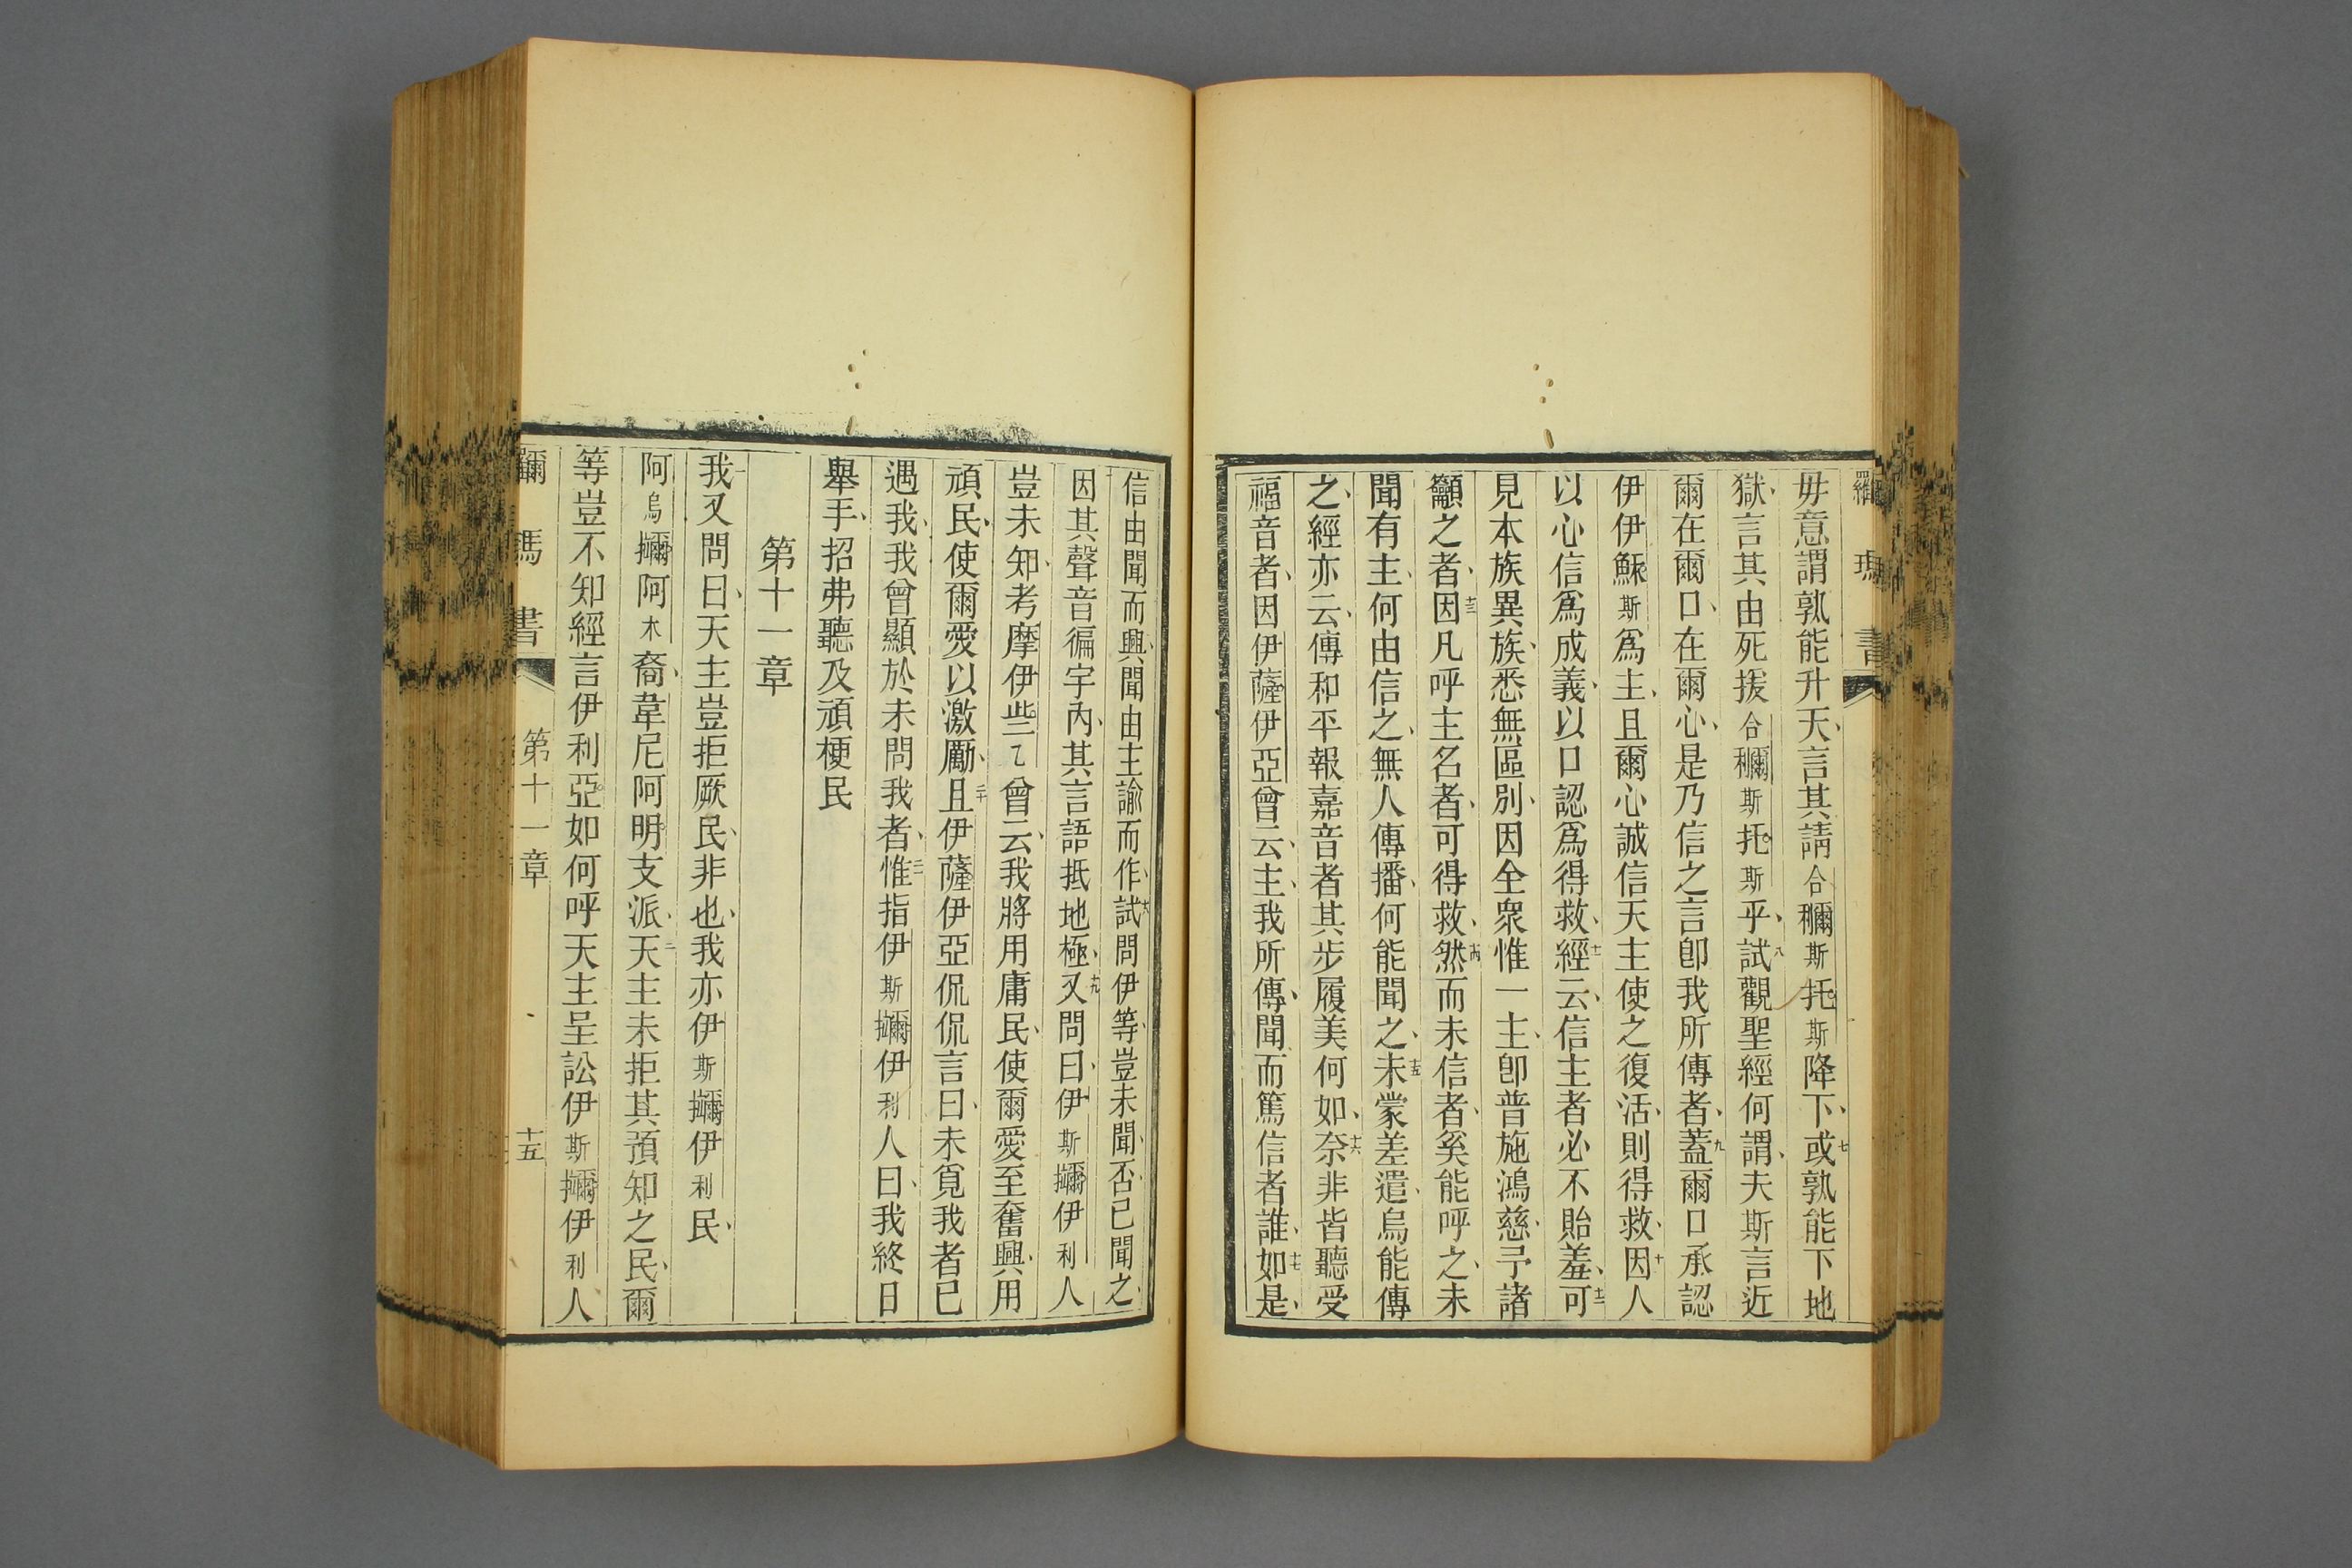 羅瑪書
毋意謂孰能升天、言其請合穪斯托斯降下、七或孰能下地
獄、言其由死援合穪斯托斯乎、八試觀聖經何謂、夫斯言近
爾在爾口、在爾心、是乃信之言卽我所傳者、九蓋爾口承認
伊伊穌斯爲主、且爾心誠信天主使之復活、則得救、十因人
以心信爲成義、以口認爲得救、十一經云、信主者必不貽羞、十二可
見本族異族、悉無區別、因全衆惟一主、卽普施鴻慈、予諸
籲之者、十三因凡呼主名者、可得救、十四然而未信者、奚能呼之、未
聞有主、何由信之、無人傳播、何能聞之、十五未蒙差遣、烏能傳
之、經亦云、傳和平報嘉音者其步履美何如、十六奈非皆聽受
福音者、因伊薩伊亞曾云、主、我所傳、聞而篤信者誰、十七如是、
信由聞而興、聞由主諭而作、十八試問伊等、豈未聞、否、已聞之、
因其聲音徧宇內、其言語抵地極、十九又問曰、伊斯擟伊利人
豈未知、考摩伊些乙曾云、我將用庸民、使爾愛至奮興、用
頑民、使爾愛以激勵、二十且伊薩伊亞侃侃言曰、未覓我者已
遇我、我曾顯於未問我者、二一惟指伊斯擟伊利人曰、我終日
舉手、招弗聽及頑梗民
第十一章
一我又問曰、天主豈拒厥民、非也、我亦伊斯擟伊利民、
阿烏擟阿木裔、韋尼阿明支派、二天主未拒其預知之民、爾
等豈不知經言伊利亞如何呼天主呈訟伊斯擟伊利人
第十一章
十五